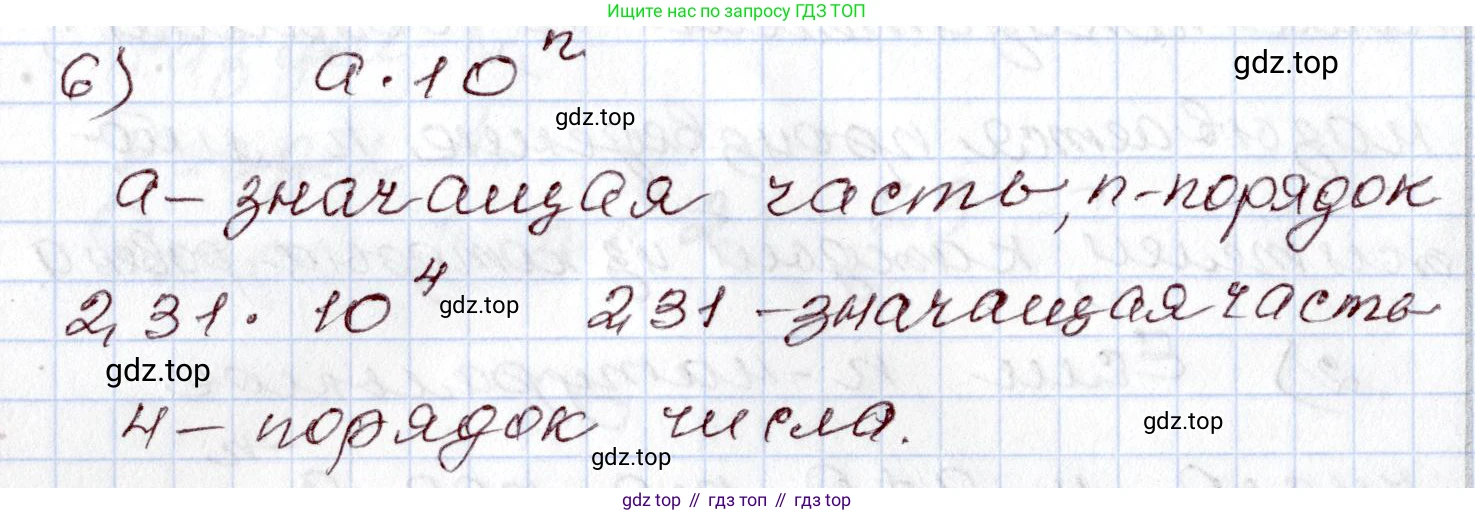 Ищите нас по запросу ГДЗ ТОП
6) a · 10ⁿ
gdz.top
gdz.top
a – значащая часть, n - порядок
2,31 · 10⁴ 2,31 – значащая часть
gdz.top
gdz.top
4 – порядок числа.
gdz.top
gdz.top
gdz top // гдз топ // гдз top